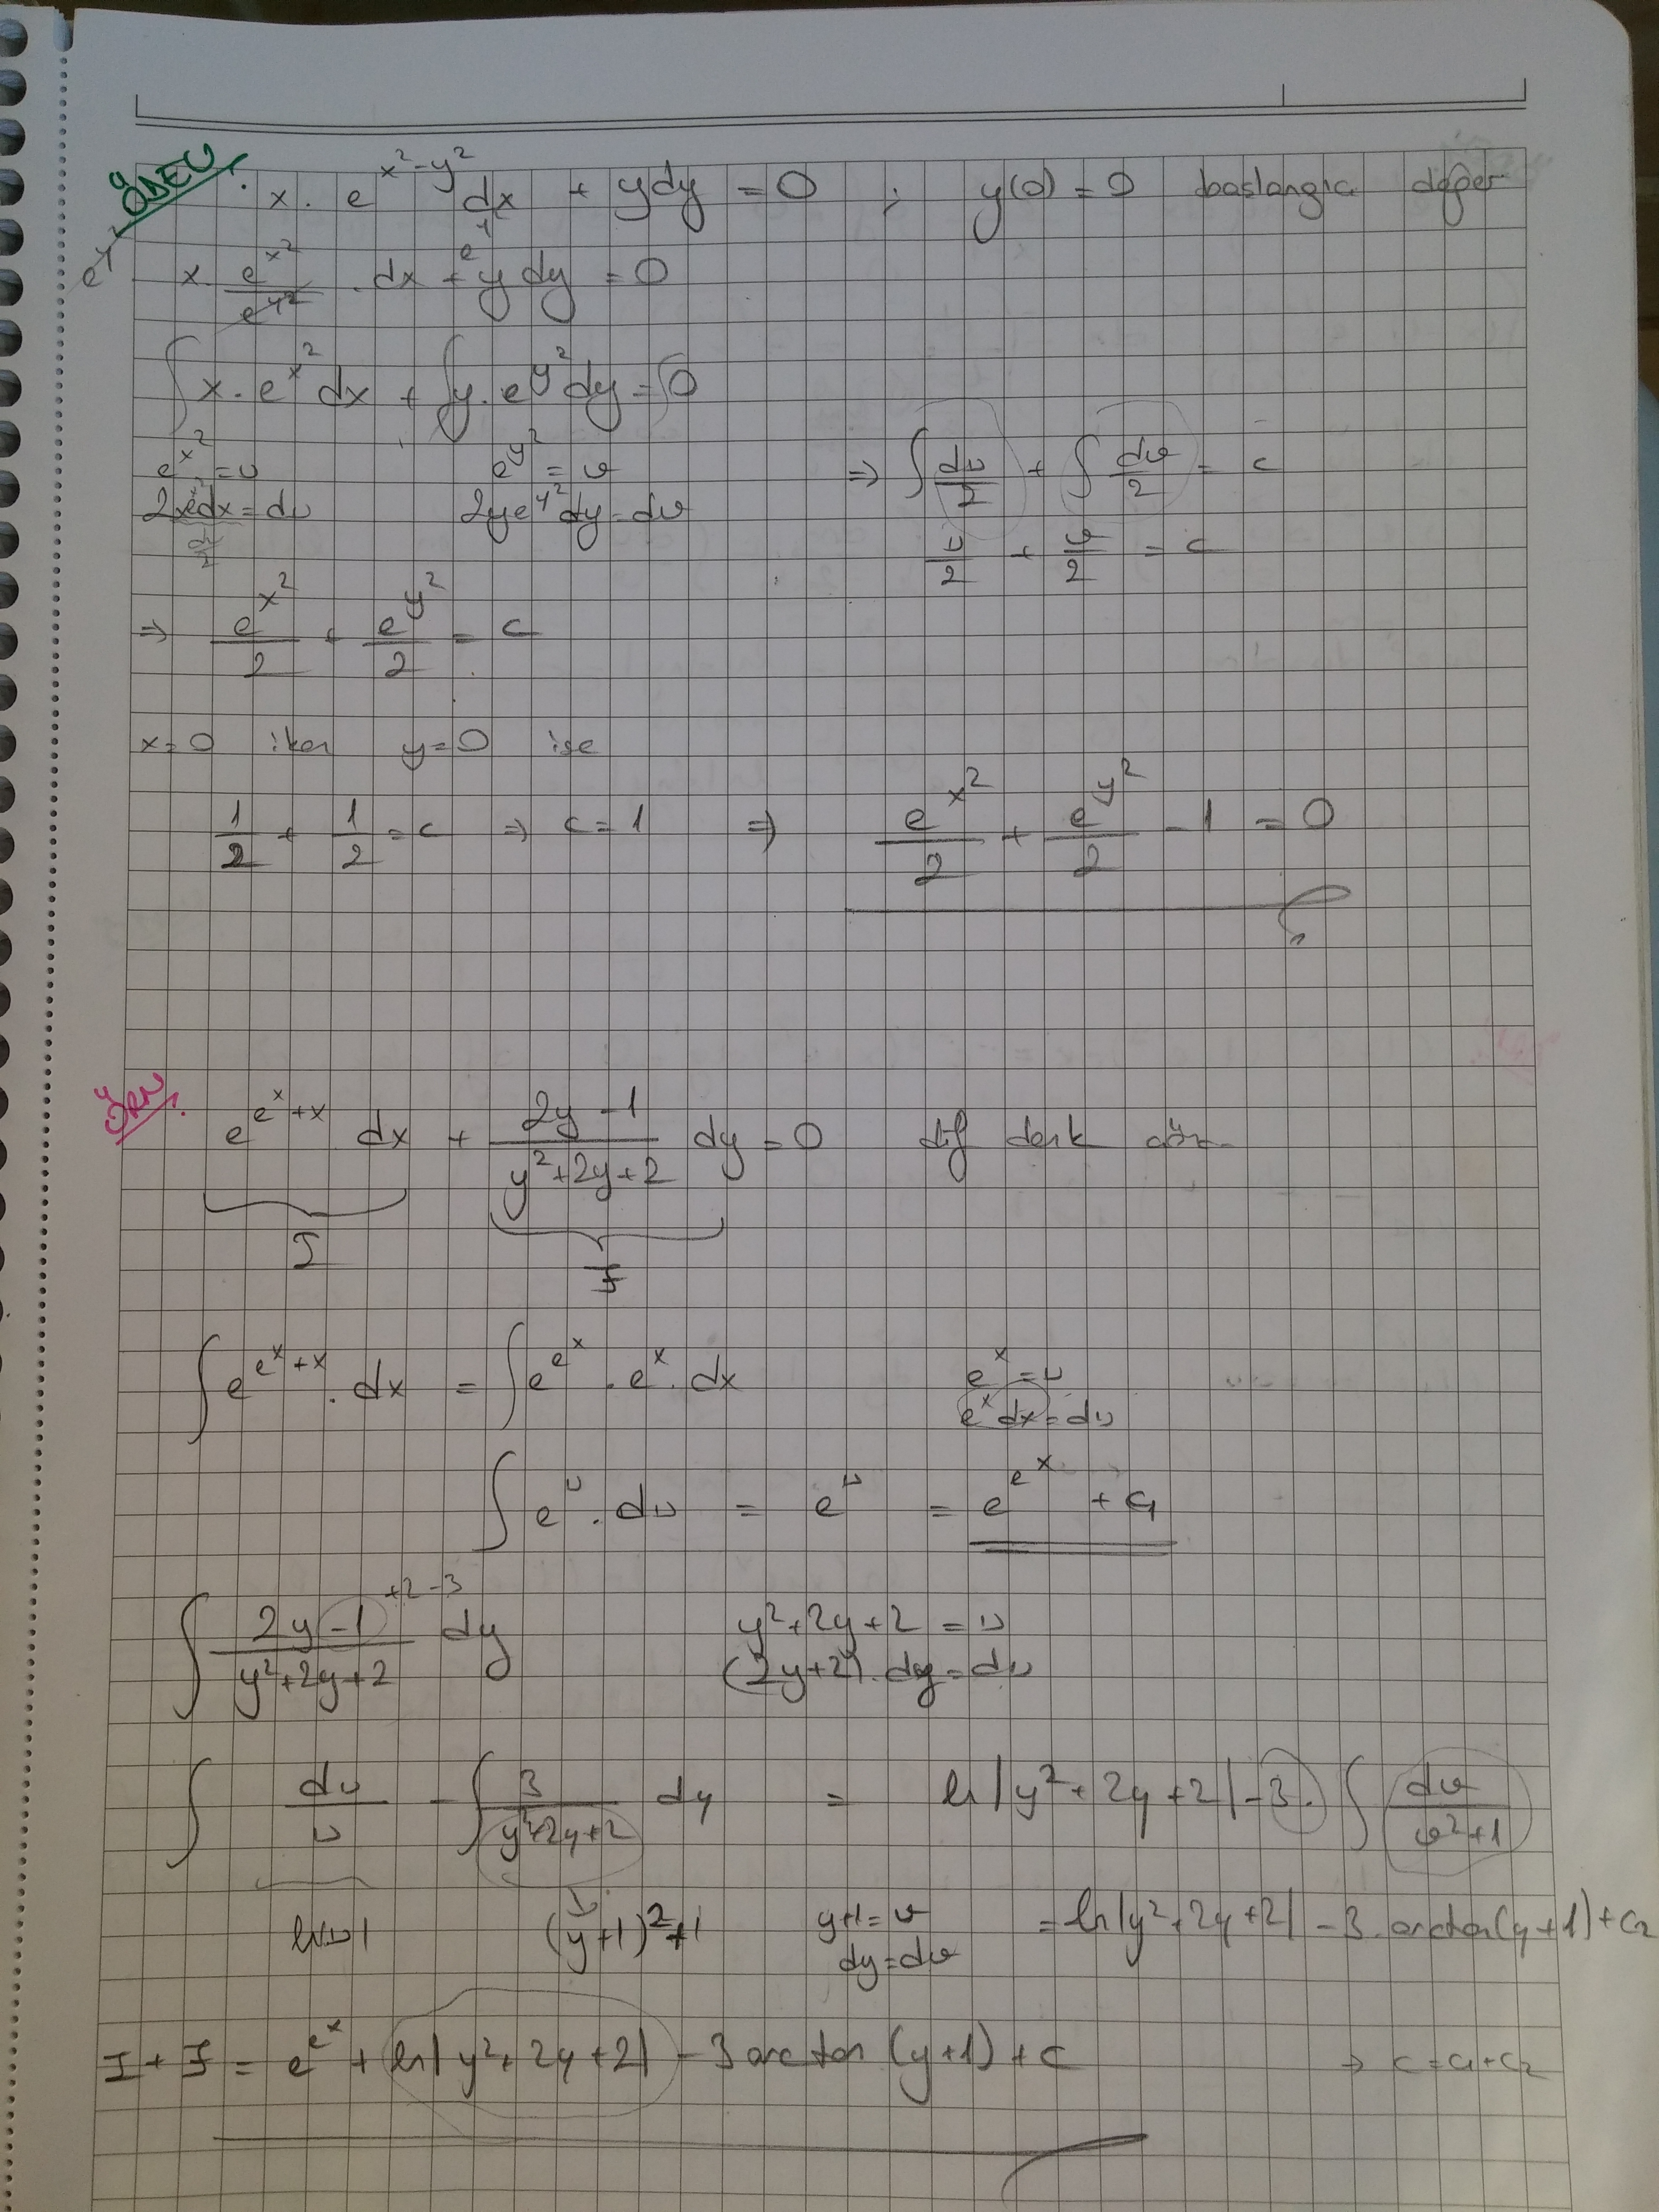 ÖDEV. x . e^(x²-y²) dx + ydy = 0 ; y(0) = 0 baslangic değer
e^(y²) x . e^(x²)/e^(y²) . dx + e^(y²) y dy = 0
∫ x . e^(x²) dx + ∫ y . e^(y²) dy = ∫ 0
e^(x²) = u e^(y²) = v ⇒ ∫ du/2 + ∫ dv/2 = c
2xe^(x²)dx = du 2ye^(y²)dy = dv
du/2 u/2 + v/2 = c
⇒ e^(x²)/2 + e^(y²)/2 = c
x=0 iken y=0 ise
1/2 + 1/2 = c ⇒ c = 1 ⇒ e^(x²)/2 + e^(y²)/2 - 1 = 0
ÖRN. e^(e^x+x) dx + (2y-1)/(y²+2y+2) dy = 0 dif denk çöz
I J
∫ e^(e^x+x) . dx = ∫ e^(e^x) . e^x . dx e^x = u
e^x dx = du
∫ e^u . du = e^u = e^(e^x) + c₁
∫ (2y-1 +2-3)/(y²+2y+2) dy y²+2y+2 = u
(2y+2) . dy = du
∫ du/u - ∫ 3/(y²+2y+2) dy = ln|y²+2y+2| - 3 . ∫ dv/(v²+1)
ln|u| (y+1)²+1 y+1 = v = ln|y²+2y+2| - 3 . arctan(y+1) + c₂
dy = dv
I + J = e^(e^x) + ln|y²+2y+2| - 3 arctan (y+1) + c ⇒ c = c₁+c₂